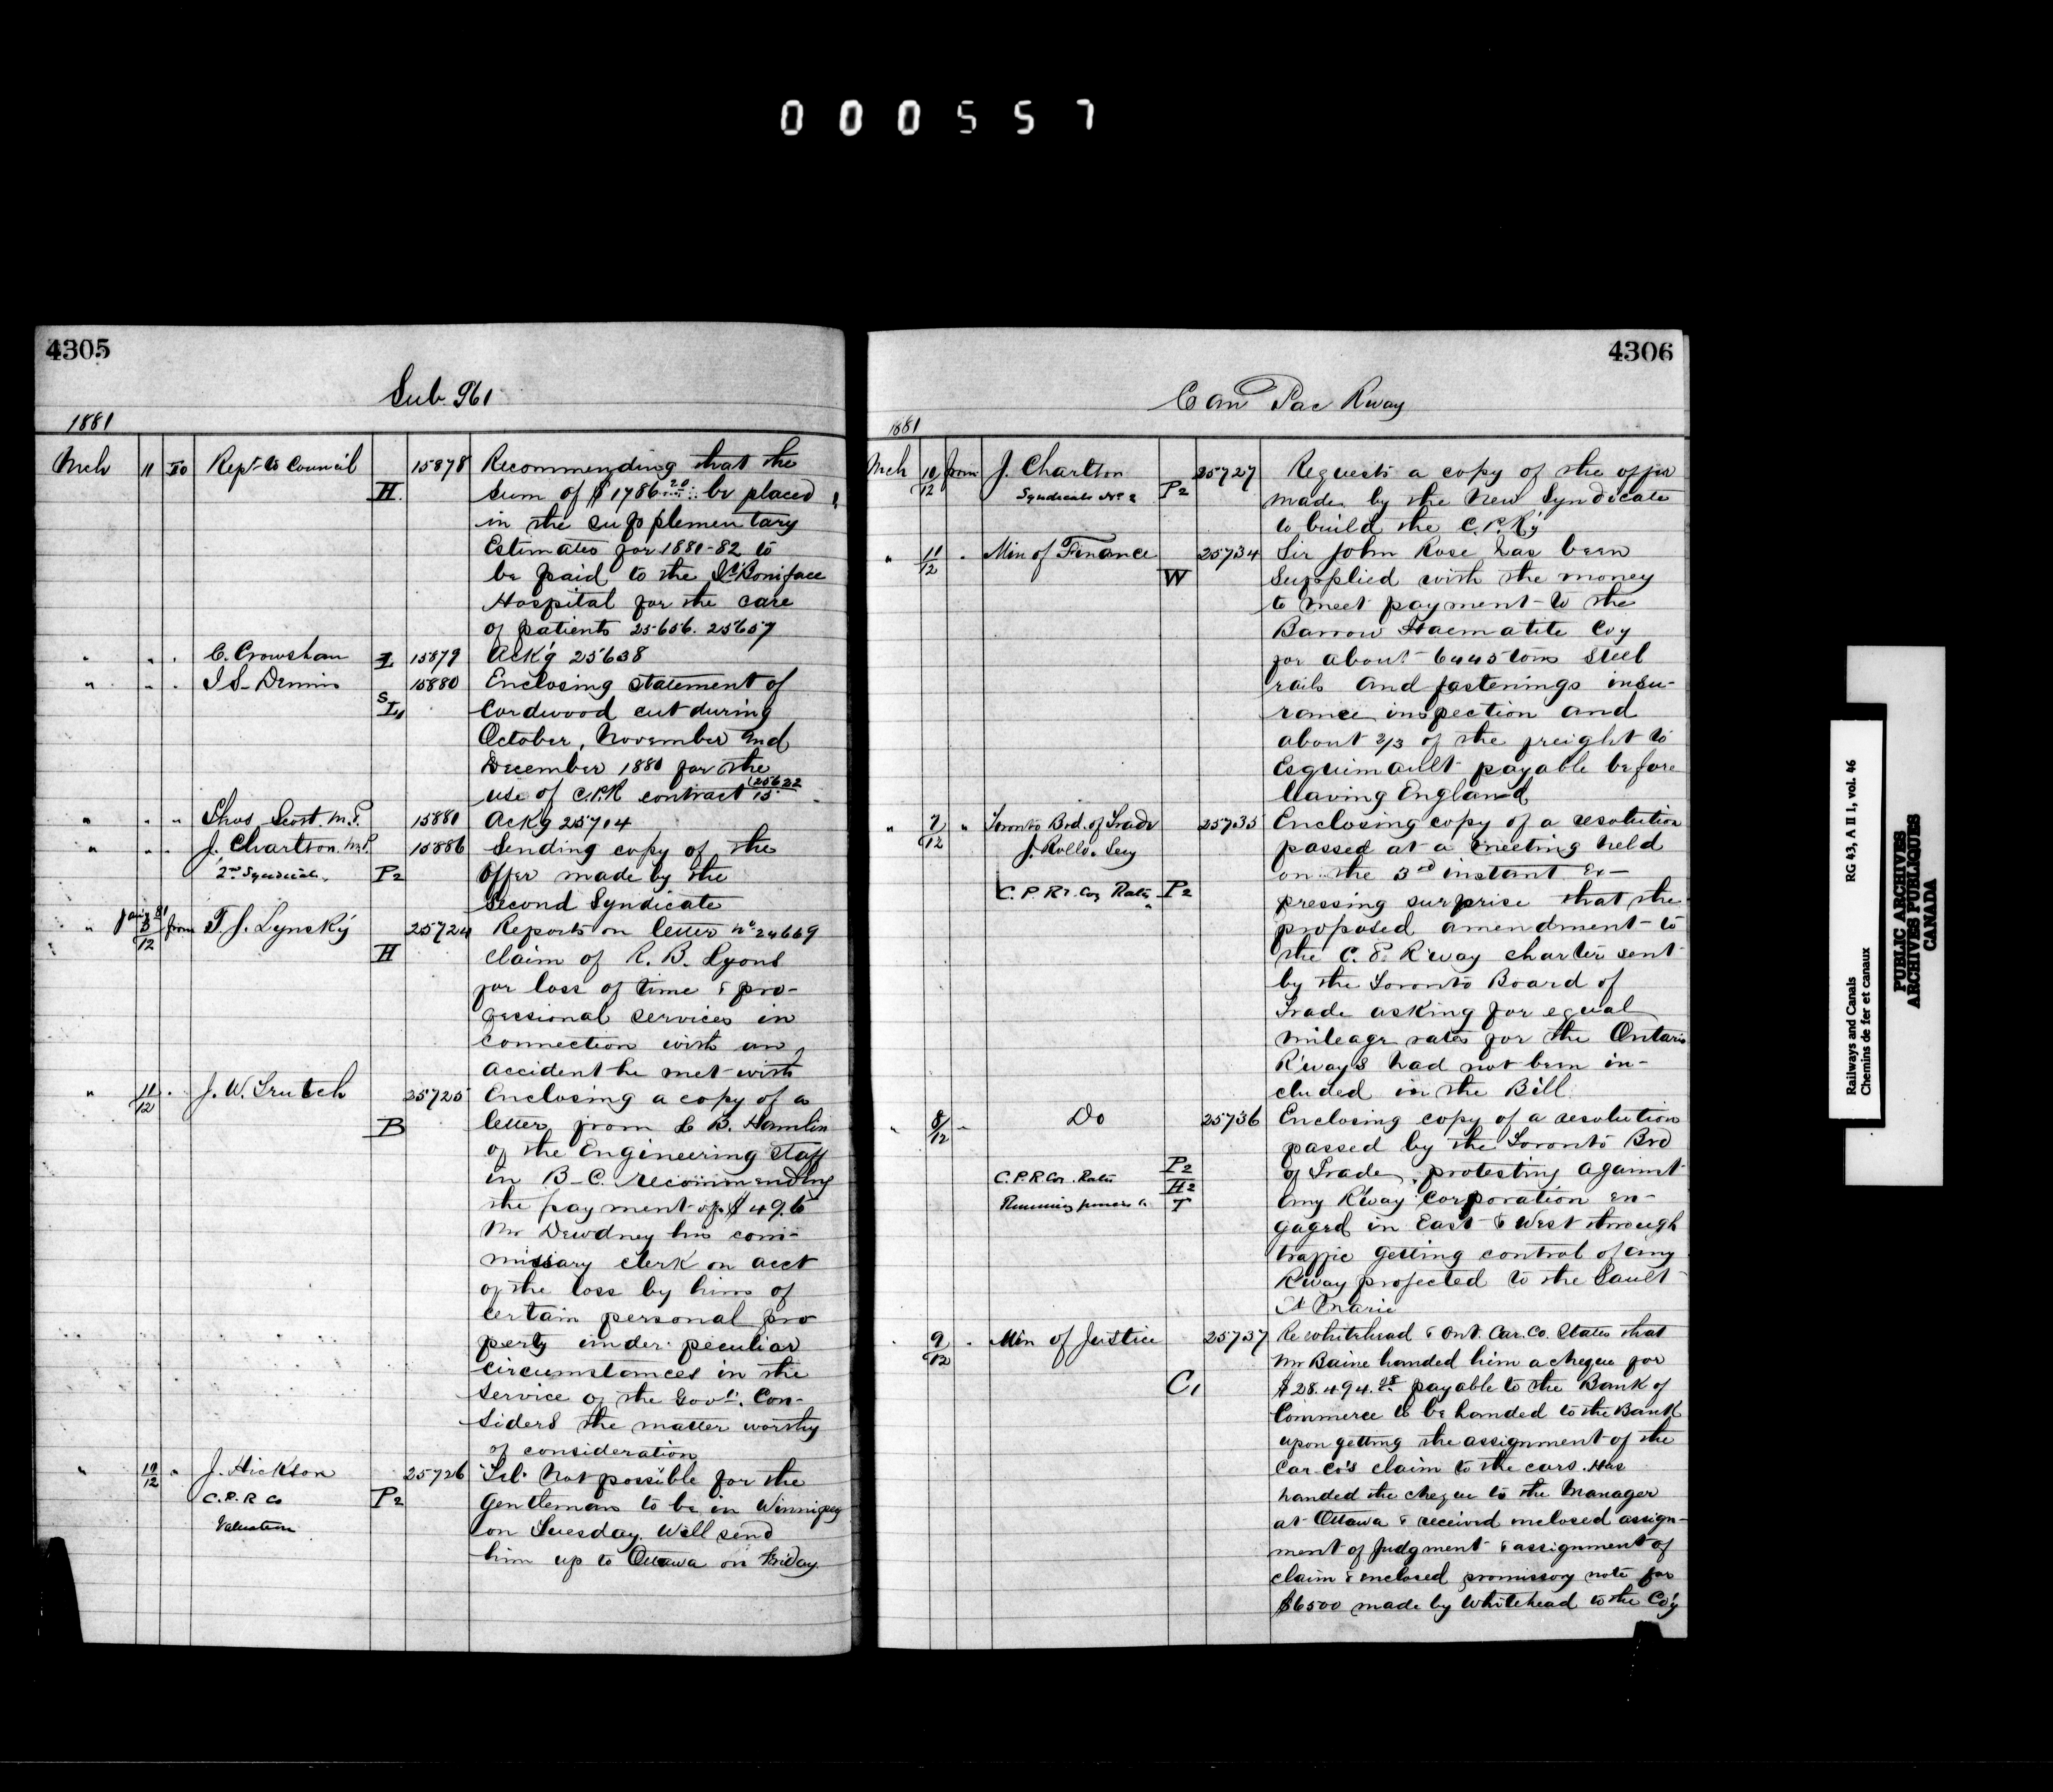 000557
4305
Sub 961
1881
Mch 11 To Rept to Council 15878 Recommending that the
H. sum of $1786 20 be placed
in the supplementary
Estimates for 1881-82 to
be paid to the St Boniface
Hospital for the care
of patients 25656. 25657
" " " C. Crowshaw L 15879 Ackg 25638
" " " J S Dennis 15880 Enclosing statement of
S L1 Cordwood cut during
October, November and
December 1880 for the
use of C.P.R contract 15 (25622
" " " Thos Scott M.P. 15881 Ackg 25714
" " " J. Charlton M.P. 15886 Sending copy of the
2nd Syndicate P2 Offer made by the
Second Syndicate
" from T. J. Lynsky 25724 Reports on letter No 24669
H claim of R. B. Lyons
for loss of time & pro-
fessional services in
connection with an
accident he met with
" 11/12 " J. W. Trutch 25725 Enclosing a copy of a
B letter from L B. Hamlin
of the Engineering staff
in B-C. recommending
the payment of $49.6
Mr Dewdney his com-
missary clerk on acct
of the loss by him of
certain personal pro
perty under peculiar
circumstances in the
service of the Govt. Con-
siders the matter worthy
of consideration
" 10/12 " J. Hickson 25726 Tel. Not possible for the
C.P.R Co P2 gentleman to be in Winnipeg
Valuation on Tuesday. Will send
him up to Ottawa on Friday.
4306
Can Pac Rway
1881
Mch 10/12 from J. Charlton 25727 Requests a copy of the offer
Syndicate No 2 P2 made by the New Syndicate
to build the C.P.Ry
" 11/12 " Min of Finance 25734 Sir John Rose has been
W supplied with the money
to meet payment to the
Barrow Haematite Coy
for about 6445 tons Steel
rails and fastenings insu-
rance inspection and
about 2/3 of the freight to
Esquimault payable before
leaving England
" 7/12 " Toronto Brd. of Trade 25735 Enclosing copy of a resolution
J. Rollo. Secy passed at a meeting held
on the 3rd instant Ex-
C.P.Ry. Coy Rates P2 pressing surprise that the
proposed amendment to
the C. P. R'way charter sent
by the Toronto Board of
Trade asking for equal
mileage rates for the Ontario
R'ways had not been in-
cluded in the Bill
" 8/12 " Do 25736 Enclosing copy of a resolution
passed by the Toronto Brd
P2 of Trade, protesting against
C.P.R.Co. Rates H2 any R'way Corporation en-
Running powers T gaged in East & West through
traffic getting control of any
R'way projected to the Sault
St Marie
" 9/12 " Min of Justice 25737 Re Whitehead & Ont. Car. Co. States that
Mr Baine handed him a cheque for
C1 $28.494.28 payable to the Bank of
Commerce to be handed to the Bank
upon getting the assignment of the
Car Co's claim to the cars. Has
handed the cheque to the Manager
at Ottawa & received enclosed assign-
ment of Judgment & assignment of
claim & enclosed promissory note for
$6500 made by Whitehead to the Coy
Railways and Canals RG 43, A II 1, vol. 46
Chemins de fer et canaux
PUBLIC ARCHIVES
ARCHIVES PUBLIQUES
CANADA